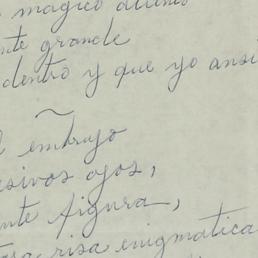 magico
nte grande
dentro y que yo ansi
~
l embrujo
esivos ojos,
nte figura,
risa enigmatica